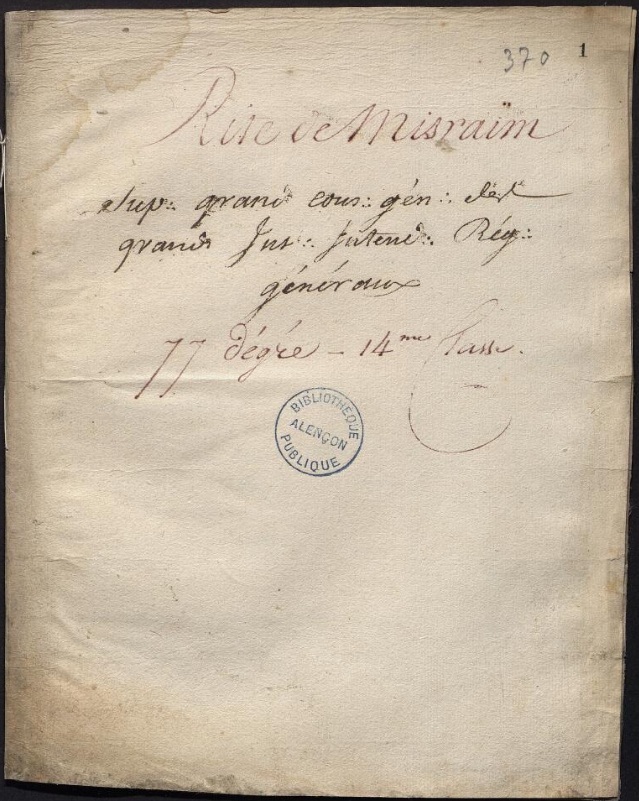 370 1
Rite de Misraïm
Sup∴ grand cons∴ gén∴ des
grands Ins∴ Intend∴ Rég∴
généraux
77 dégré - 14me Classe.
BIBLIOTHEQUE
ALENÇON
PUBLIQUE